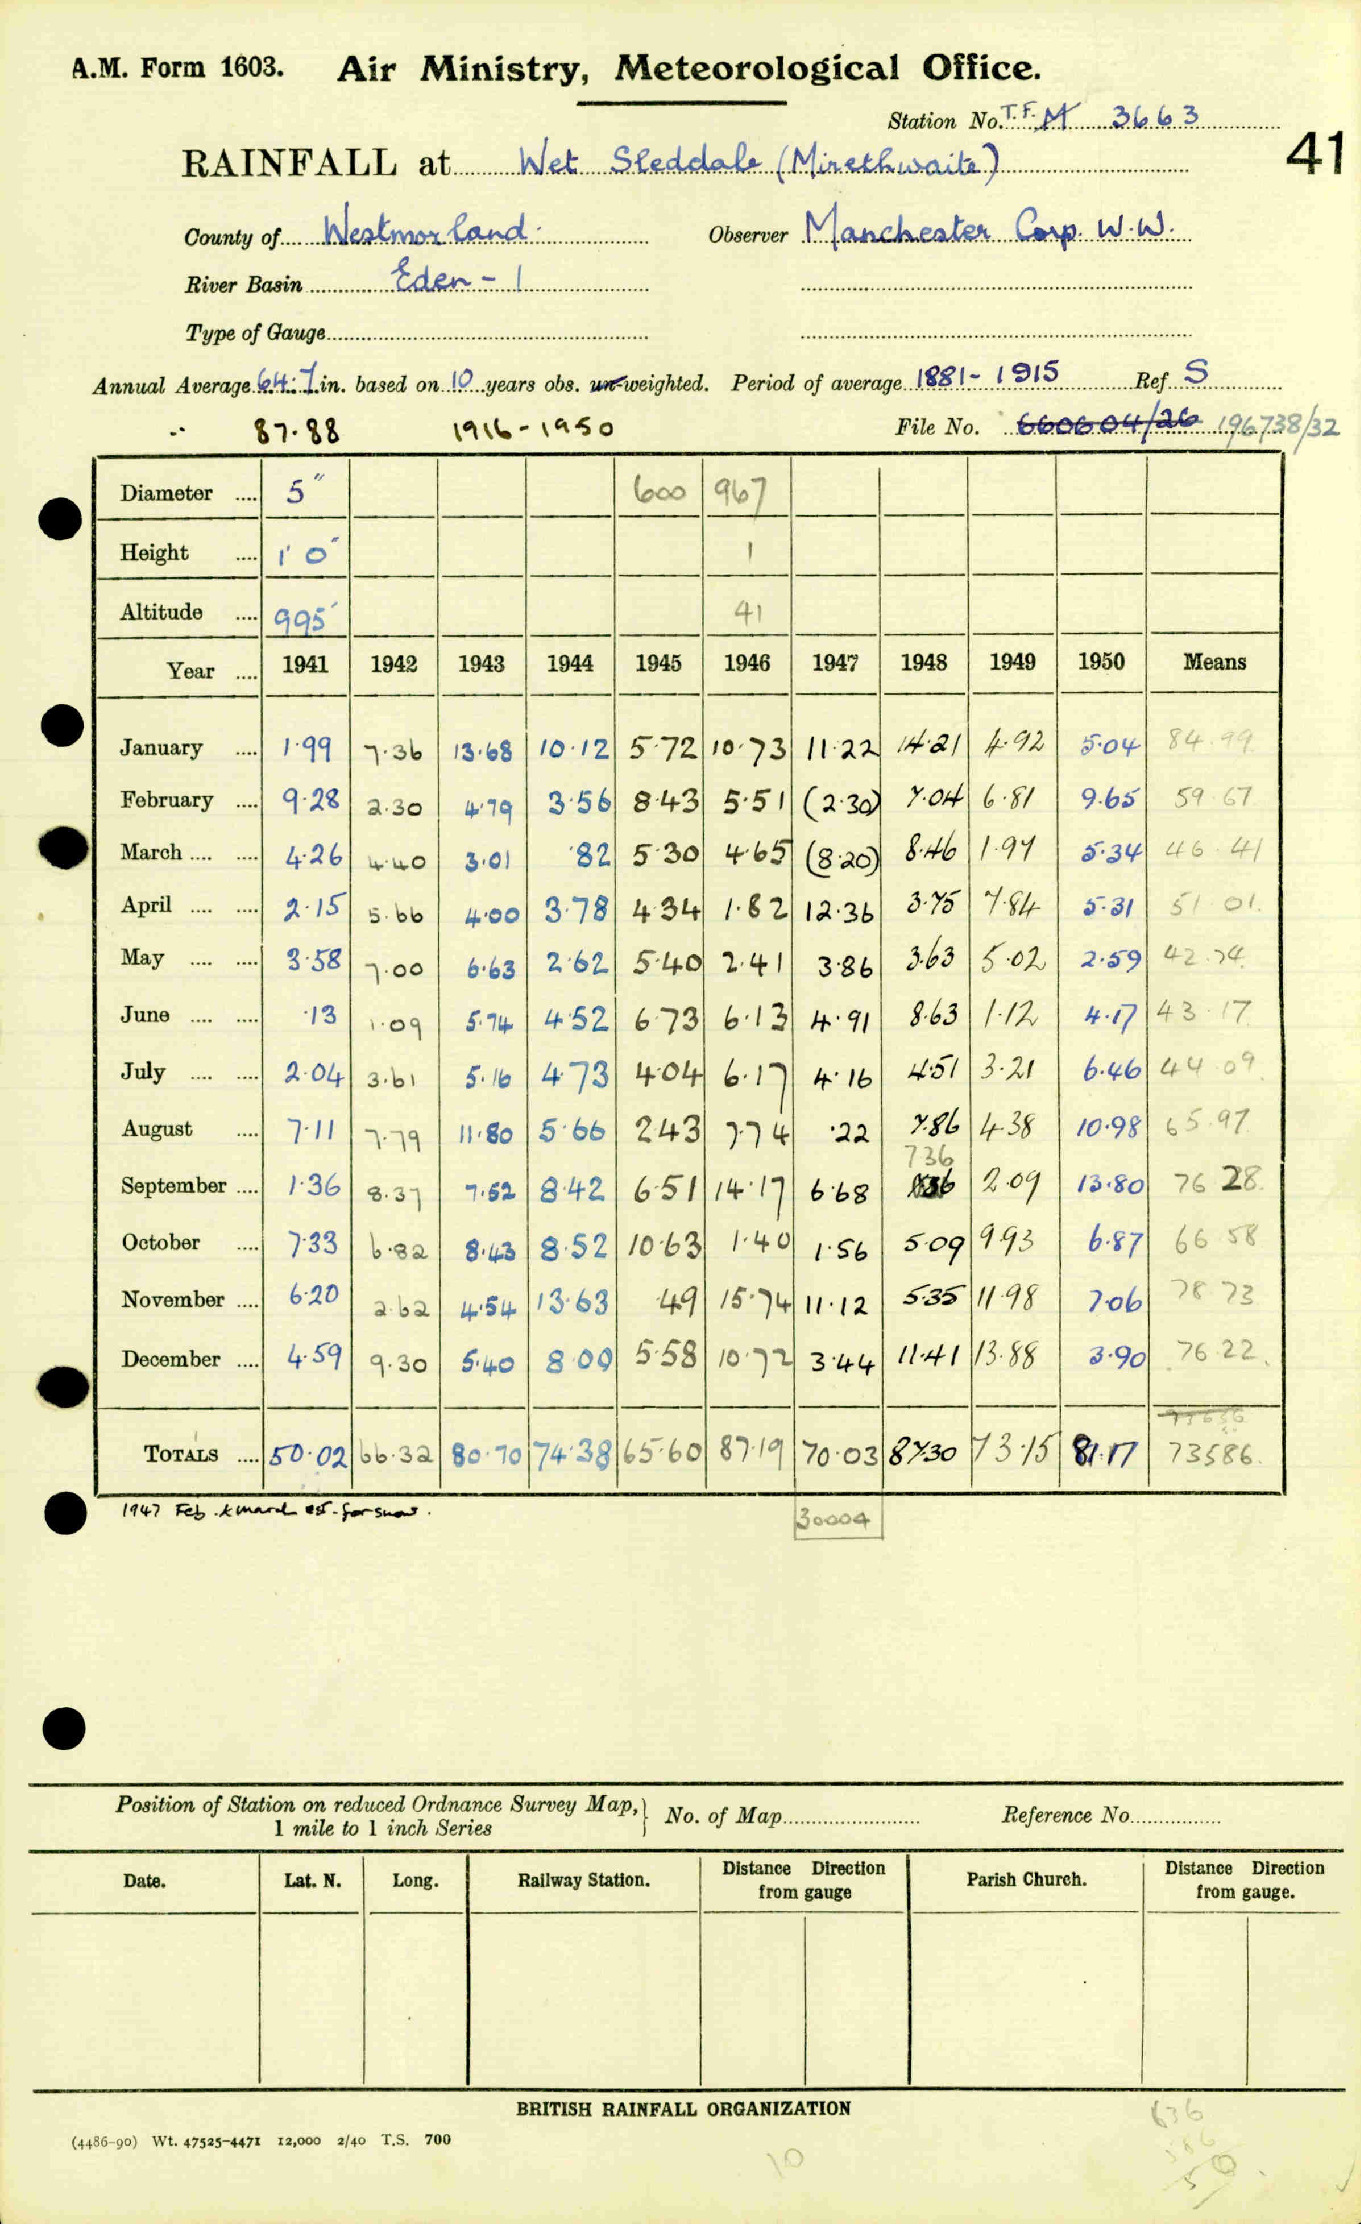 A.M. Form 1603. Air Ministry, Meteorological Office.
Station No. T.F. M 3663
41
RAINFALL at Wet Sleddale (Mirethwaite)
County of Westmorland. Observer Manchester Corp. W.W.
River Basin Eden - 1
Type of Gauge
Annual Average 64.7 in. based on 10 years obs. un-weighted. Period of average 1881-1915 Ref S
" 87.88 1916-1950 File No. 660604/26 196738/32
Diameter .... 5" 600 967
Height .... 1' 0" 1
Altitude .... 995' 41
Year .... 1941 1942 1943 1944 1945 1946 1947 1948 1949 1950 Means
January .... 1.99 7.36 13.68 10.12 5.72 10.73 11.22 14.21 4.92 5.04 84.99
February .... 9.28 2.30 4.79 3.56 8.43 5.51 (2.30) 7.04 6.81 9.65 59.67
March .... .... 4.26 4.40 3.01 .82 5.30 4.65 (8.20) 8.46 1.97 5.34 46.41
April .... .... 2.15 5.66 4.00 3.78 4.34 1.82 12.36 3.75 7.84 5.31 51.01
May .... .... 3.58 7.00 6.63 2.62 5.40 2.41 3.86 3.63 5.02 2.59 42.74
June .... .... .13 1.09 5.74 4.52 6.73 6.13 4.91 8.63 1.12 4.17 43.17
July .... .... 2.04 3.61 5.16 4.73 4.04 6.17 4.16 4.51 3.21 6.46 44.09
August .... 7.11 7.79 11.80 5.66 2.43 7.74 .22 7.86 4.38 10.98 65.97
736
September .... 1.36 8.37 7.52 8.42 6.51 14.17 6.68 2.09 13.80 76.28
October .... 7.33 6.82 8.43 8.52 10.63 1.40 1.56 5.09 9.93 6.87 66.58
November .... 6.20 2.62 4.54 13.63 .49 15.74 11.12 5.35 11.98 7.06 78.73
December .... 4.59 9.30 5.40 8.00 5.58 10.72 3.44 11.41 13.88 3.90 76.22
73636
TOTALS .... 50.02 66.32 80.70 74.38 65.60 87.19 70.03 87.30 73.15 81.17 73586
1947 Feb. & March est. for snow.
30004
Position of Station on reduced Ordnance Survey Map, } No. of Map Reference No.
1 mile to 1 inch Series
Date. Lat. N. Long. Railway Station. Distance Direction from gauge Parish Church. Distance Direction from gauge.
BRITISH RAINFALL ORGANIZATION
(4486-90) Wt. 47525-4471 12,000 2/40 T.S. 700
10
636
586
50